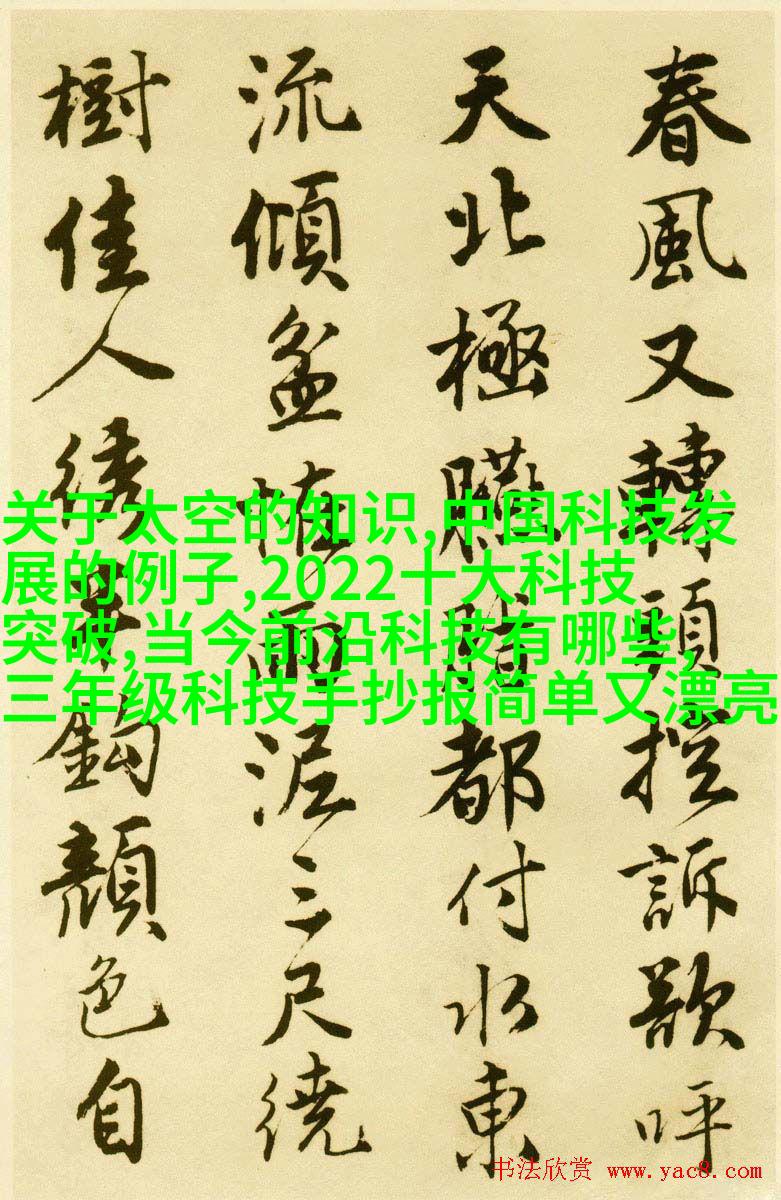 春風又轉頭控訴歌呼
天北極臘都付水東
流傾盆雨泥三尺繞
樹佳人綉鉤顏色自
关于太空的知识,中国科技发
展的例子,2022十大科技
突破,当今前沿科技有哪些,
三年级科技手抄报简单又漂亮
书法欣赏 www.yac8.com